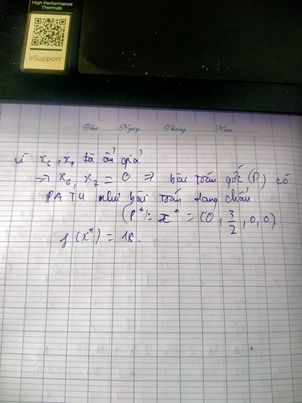 High Performance
Thermals
eSupport
Thứ Ngày Tháng Năm
vì x₆, x₇ là ẩn giả
→ x₆, x₇ = 0 ⇒ bài toán gốc (P) có
PATU như bài toán dạng chuẩn
(P*): x* = (0, 3/2, 0, 0)
f(x*) = 18.